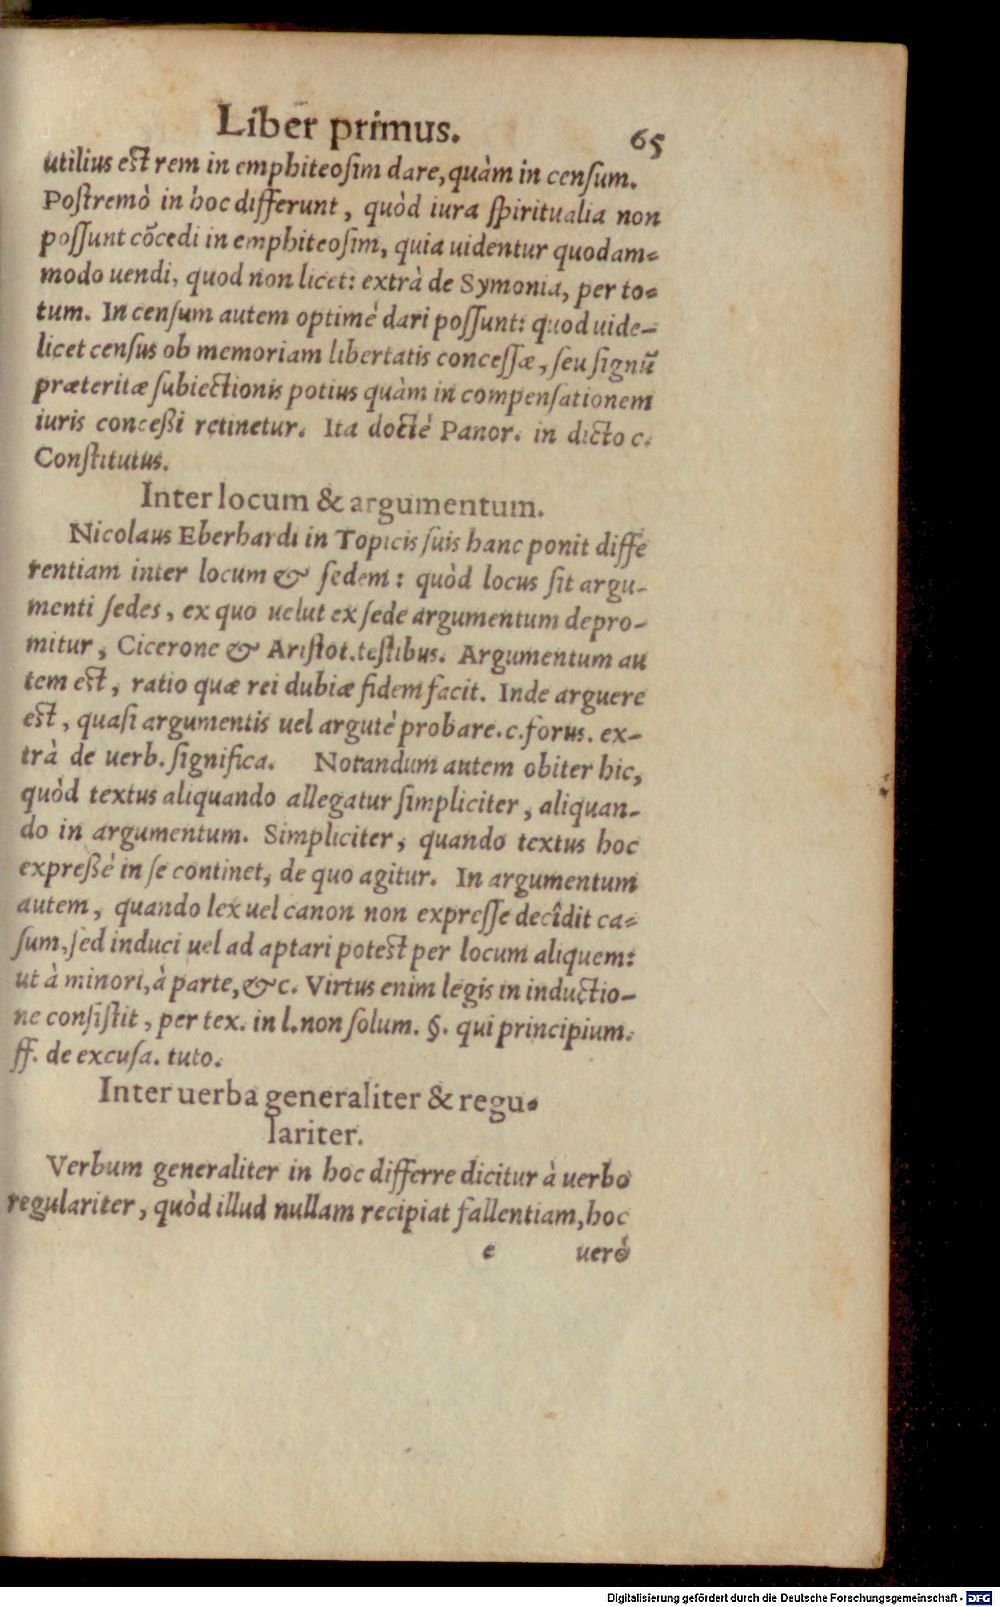 Liber primus. 65
utilius est rem in emphiteosim dare, quàm in censum.
Postremò in hoc differunt, quòd iura spiritualia non
possunt cõcedi in emphiteosim, quia uidentur quodam=
modo uendi, quod non licet: extrà de Symonia, per to=
tum. In censum autem optimè dari possunt: quod uide-
licet census ob memoriam libertatis concessæ, seu signũ
præteritæ subiectionis potius quàm in compensationem
iuris conceßi retinetur. Ita doctè Panor. in dicto c.
Constitutus.
Inter locum & argumentum.
Nicolaus Eberhardi in Topicis suis hanc ponit diffe
rentiam inter locum & sedem: quòd locus sit argu-
menti sedes, ex quo uelut ex sede argumentum depro-
mitur, Cicerone & Aristot. testibus. Argumentum au
tem est, ratio quæ rei dubiæ fidem facit. Inde arguere
est, quasi argumentis uel argutè probare. c. forus. ex-
trà de uerb. significa. Notandum autem obiter hic,
quòd textus aliquando allegatur simpliciter, aliquan-
do in argumentum. Simpliciter, quando textus hoc
expreßè in se continet, de quo agitur. In argumentum
autem, quando lex uel canon non expresse decîdit ca=
sum, sed induci uel ad aptari potest per locum aliquem:
ut à minori, à parte, &c. Virtus enim legis in inductio-
ne consistit, per tex. in l. non solum. §. qui principium.
ff. de excusa. tuto.
Inter uerba generaliter & regu=
lariter.
Verbum generaliter in hoc differre dicitur à uerbo
regulariter, quòd illud nullam recipiat fallentiam, hoc
e uerò
Digitalisierung gefördert durch die Deutsche Forschungsgemeinschaft - DFG